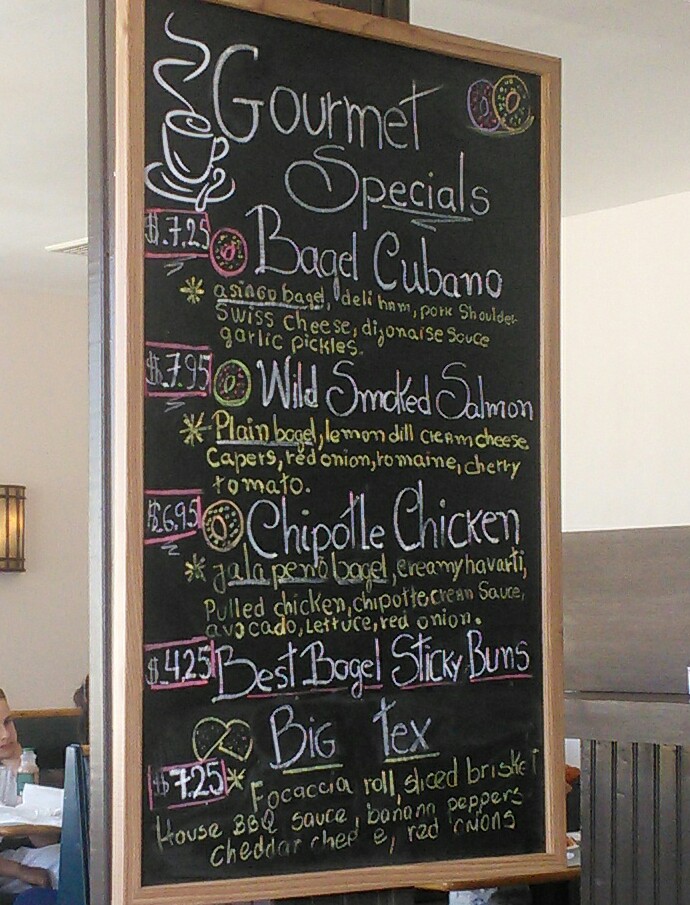 Gourmet
Specials
$7.25 Bagel Cubano
asiago bagel, deli ham, pork shoulder
Swiss cheese, dijonaise sauce
garlic pickles.
$7.95 Wild Smoked Salmon
Plain bagel, lemon dill cream cheese
Capers, red onion, romaine, cherry
tomato.
$6.95 Chipotle Chicken
jalapeno bagel, creamy havarti,
Pulled chicken, chipotte cream Sauce,
avocado, Lettuce, red onion.
$4.25 Best Bagel Sticky Buns
Big Tex
$7.25 Focaccia roll, sliced brisket
House BBQ sauce, banana peppers
cheddar, red onions